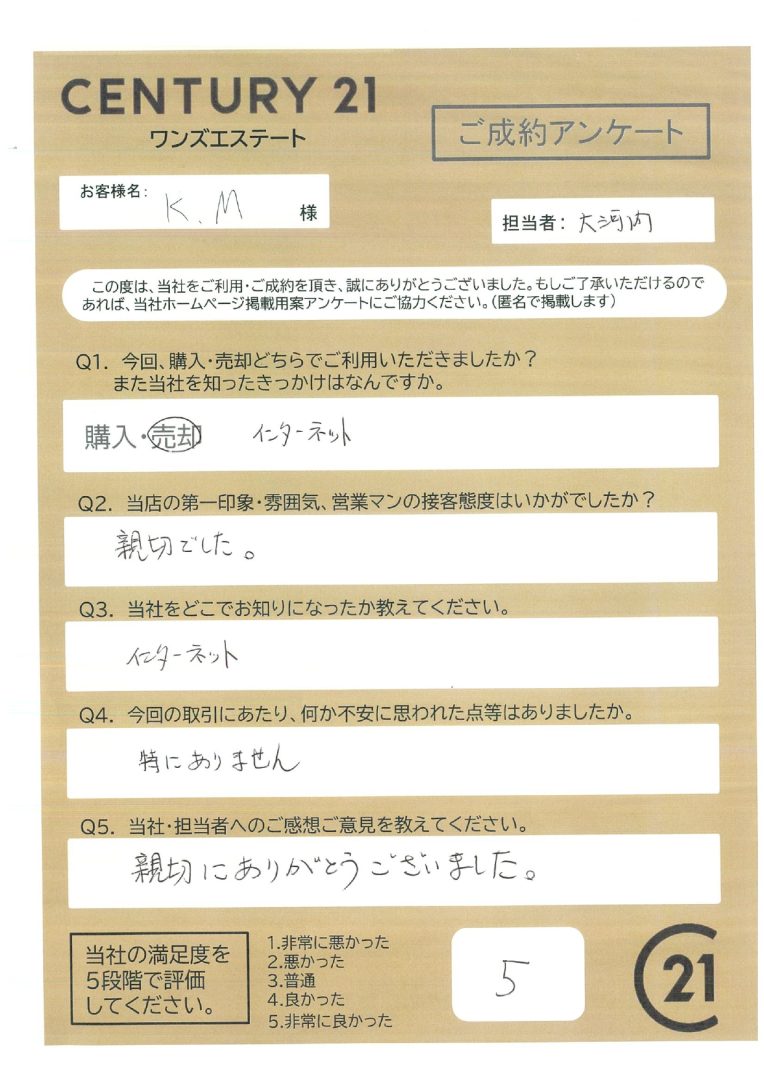 CENTURY 21
ワンズエステート
ご成約アンケート
お客様名: K.M 様
担当者: 大河内
この度は、当社をご利用・ご成約を頂き、誠にありがとうございました。もしご了承いただけるので
あれば、当社ホームページ掲載用案アンケートにご協力ください。(匿名で掲載します)
Q1. 今回、購入・売却どちらでご利用いただきましたか?
また当社を知ったきっかけはなんですか。
購入・売却 インターネット
Q2. 当店の第一印象・雰囲気、営業マンの接客態度はいかがでしたか?
親切でした。
Q3. 当社をどこでお知りになったか教えてください。
インターネット
Q4. 今回の取引にあたり、何か不安に思われた点等はありましたか。
特にありません
Q5. 当社・担当者へのご感想ご意見を教えてください。
親切にありがとうございました。
当社の満足度を
5段階で評価
してください。
1.非常に悪かった
2.悪かった
3.普通
4.良かった
5.非常に良かった
5
C21